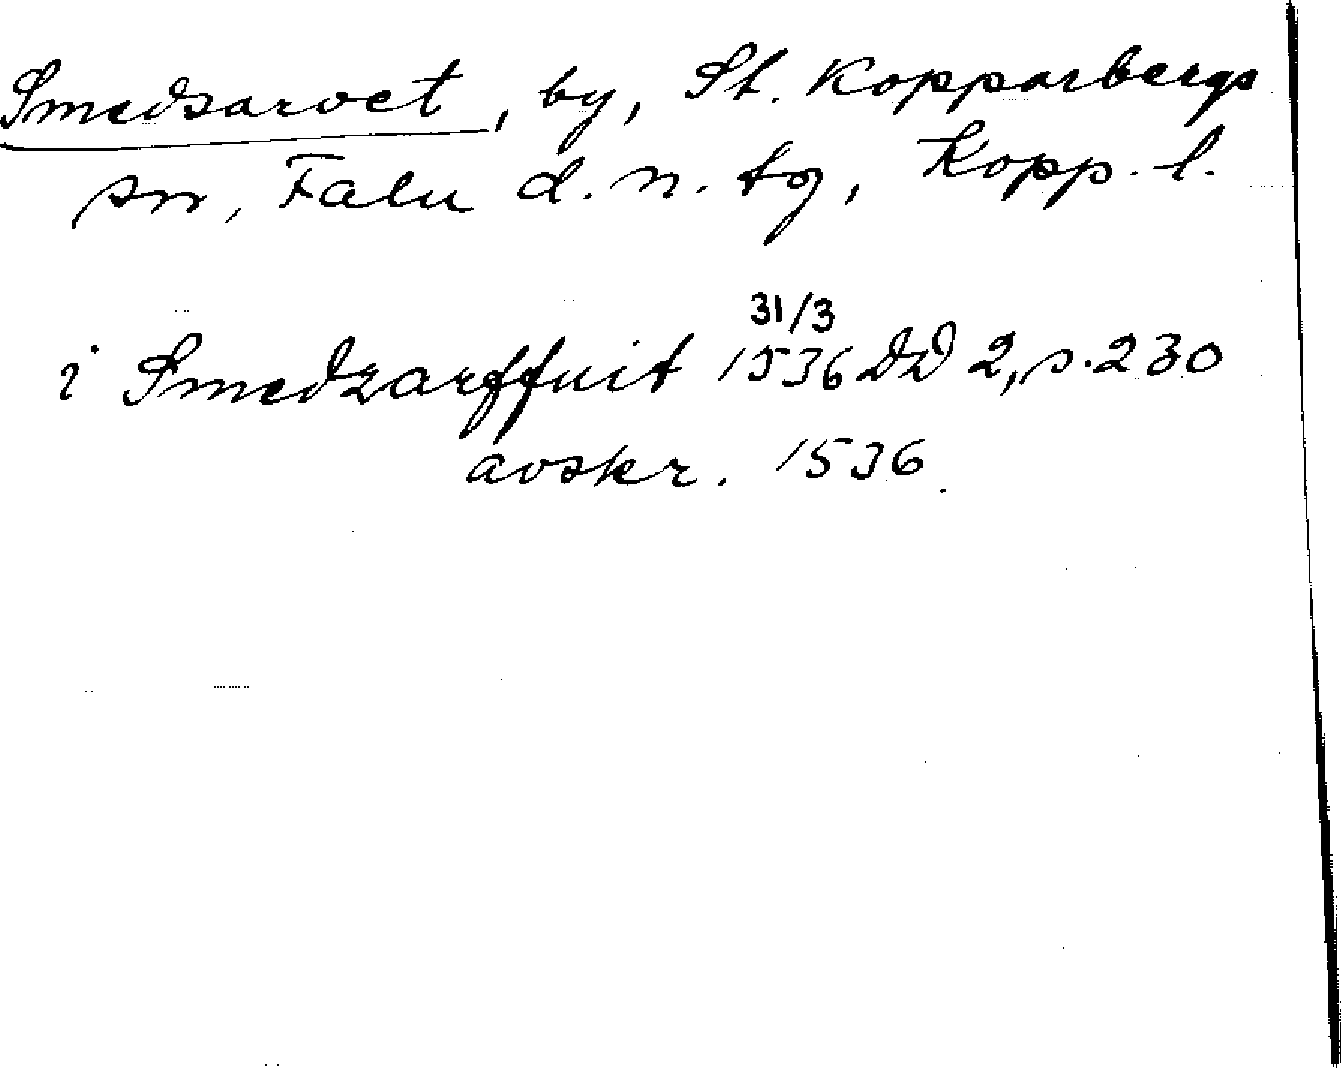 Smedsarvet, by, St. Kopparbergs
sn, Falu d. n. tg, Kopp. l.
31/3
i Smedzarffuit 1536 DD 2, s. 230
avskr. 1536.